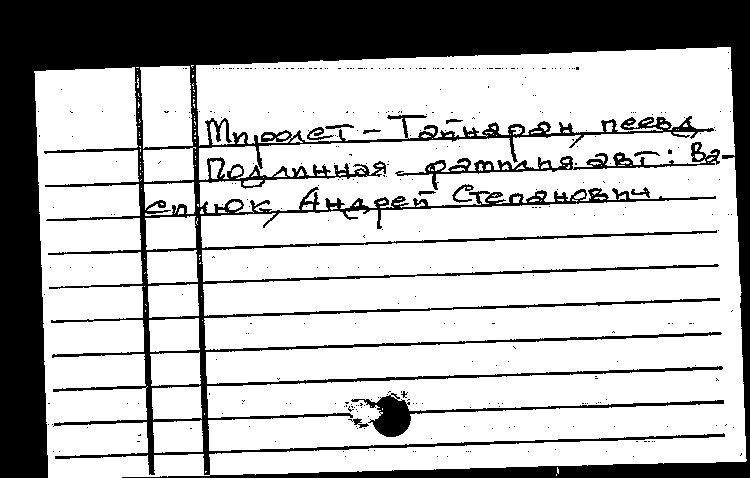 Миролет - Тайнаран, псевд.
Подлинная фамилия авт: Ва-
сенюк, Андрей Степанович.